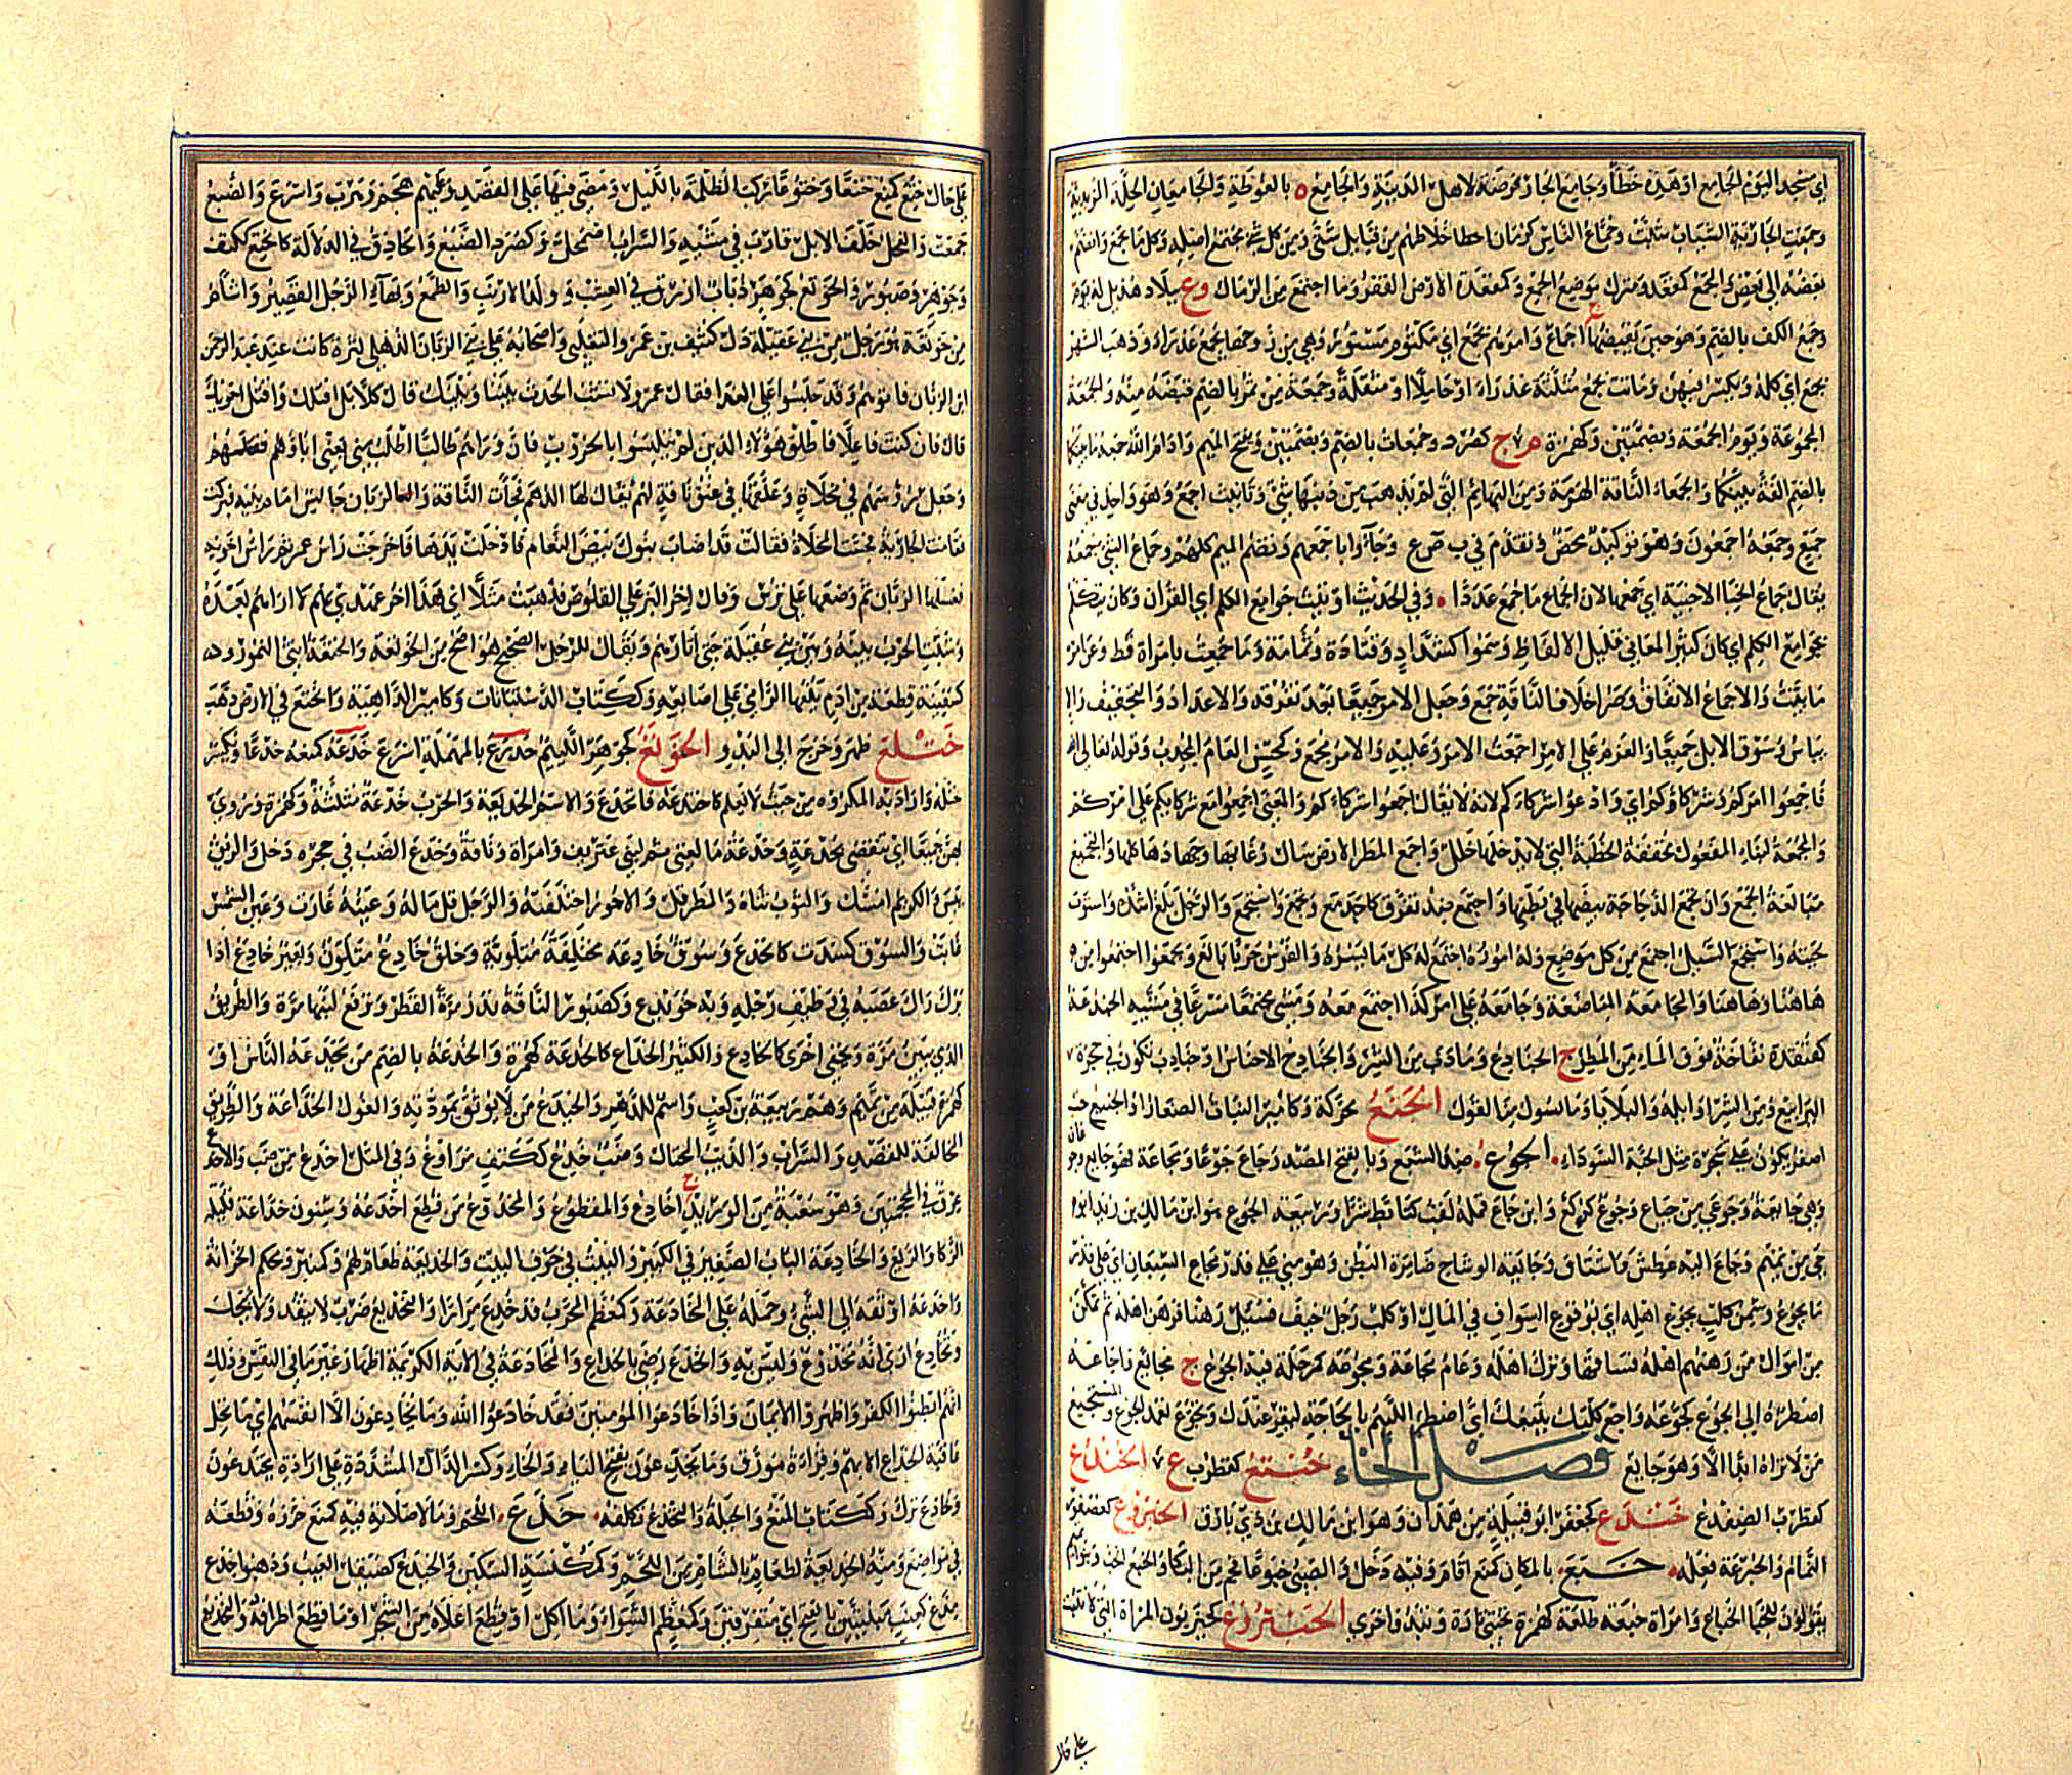 اي مسجد اليوم الجامع او هذه خطأ وجامع الجار فرضة لاهل المدينة والجامع ة بالغوطة والجامعان الحلة المزيدية
وجمعت الجارية الثياب شبت وجماع الناس كرمان اخلاطهم من قبايل شتى ومن كل شيء مجتمع اصله وكل ما تجمع وانضم
بعضه الى بعض والمجمع كمقعد ومنزل موضع الجمع وكمقعدة الارض القفر وما اجتمع من الرمال وع ببلاد هذيل له يوم
وجمع الكف بالضم وهو حين تقبضها ج اجماع وامرهم بجمع اي مكتوم مستور وهي من زوجها بجمع عذراء وذهب الشهر
بجمع اي كله ويكسر فيهن وماتت بجمع مثلثة عذراء او حاملا او مثقلة وجمعة من تمر بالضم قبضة منه والجمعة
المجموعة ويوم الجمعة وبضمتين وكهمزة م ج كصرد وجمعات بالضم وبضمتين وبفتح الميم وادام الله جمعة ما بينكما
بالضم الفة بينكما والجمعاء الناقة الهرمة ومن البهائم التي لم يذهب من بدنها شيء وتانيث اجمع وهو واحد في معنى
جميع وجمعه اجمعون وهو توكيد محض وتقدم في ب ص ع وجاؤا باجمعهم وتضم الميم كلهم وجماع الشيء جمعه
يقال جماع الخباء الاخبية اي جمعها لان الجماع ما جمع عددا وفي الحديث اوتيت جوامع الكلم اي القرآن وكان يتكلم
بجوامع الكلم اي كان كثير المعاني قليل الالفاظ وسموا كشداد وقتادة وثمامة وما جمعت بامراة قط وعن امراة
ما بنيت والاجماع الاتفاق وصر اخلاف الناقة جمع وجعل الامر جميعا بعد تفرقه والاعداد والتجفيف والا
يباس وسوق الابل جميعا والعزم على الامر اجمعت الامر وعليه والامر مجمع وكمحسن العام المجدب وقوله تعالى
فاجمعوا امركم وشركاؤكم اي وادعوا شركاءكم لانه لا يقال اجمعوا شركاءكم او المعنى اجمعوا مع شركائكم على امركم
والمجمعة لبناء المفعول مخففة الخطبة التي لا يدخلها خلل واجمع المطر الارض سال رغابها وجهادها كلها والتجميع
مبالغة الجمع وان تجمع الدجاجة بيضها في بطنها واجتمع ضد تفرق كاجدمع وتجمع واستجمع والرجل بلغ اشده واستوت
لحيته واستجمع السيل اجتمع من كل موضع وله اموره اجتمع له كل ما يسره والفرس جريا بالغ وتجمعوا اجتمعوا من
هاهنا وهاهنا والمجامعة المباضعة وجامعه على امر كذا اجتمع معه ومشى مجتمعا مسرعا في مشيه الجندعة
كقنفذة نفاخة فوق الماء من المطر ج الجنادع وما دب من الشر والجنادع الاحناش او جنادب تكون في جحرة
اليرابيع ومن الشر اوائله والبلايا وما يسوك من القول الجنع محركة وكامير النبات الصغار او الجنيع حب
اصفر يكون على شجرة مثل الحبة السوداء الجوع ضد الشبع وبالفتح المصدر جاع جوعا ومجاعة فهو جايع وجوعان
وهي جائعة وجوعى من جياع وجوع كركع وابن جاع قمله لقب كتابط شرا وربيعة الجوع هو ابن مالك بن زيد ابو
حي من تميم وجاع اليه عطش واشتاق وجايعة الوشاح ضامرة البطن وهو مني على قدر مجاع الشبعان اي على قدر
ما يجوع وسمن كلب بجوع اهله اي بوقوع السواف في المال او كلب رجل خيف فسئل رهنا فرهن اهله ثم تمكن
من اموال من رهنهم اهله فساقها وترك اهله وعام مجاعة ومجوعة كمرحلة فيه الجوع ج مجايع واجاعه
اضطره الى الجوع كجوعه واجع كلبك يتبعك اي اضطر اللئيم بالحاجة ليقر عندك وتجوع تعمد الجوع والمستجيع
من لا تراه ابدا الا وهو جايع فصل الخاء ختتع كقطرب ع الخندع
كقطرب الضفدع خندع كجعفر ابو قبيلة من همدان وهو ابن مالك بن ذي بارق الخبروع كعضفور
النمام والخبرعة فعله خبع بالمكان كمنع اقام وفيه دخل والصبي خبوعا فحم من البكاء والخبع الخب وبنو تميم
يقولون للخبا الخباع وامراة خبعة طلعة كهمزة تختبى تارة وتبدو اخرى الخبتروع كحيزبون المراة التي لا تثبت
على قال
على حال ختع كمنع ختعا وختوعا ركب الظلمة بالليل ومضى فيها على القصد وعليهم هجم وهرب واسرع والضبع
خمعت والفحل خلف الابل قارب في مشيه والسراب اضمحل وكصرد الضبع والحاذق في الدلالة كالختع ككتف
وجوهر وصبور والخوتع كجوهر ذباب ازرق في العشب وولد الارنب والطمع وبهاء الرجل القصير واشأم
من خوتعة هو رجل من بني غفيلة دل كثيف بن عمرو التغلبي واصحابه على بني الزبان الذهلي لترة كانت عند عمرو
ابن الزبان فاتوهم وقد جلسوا على الغداء فقال عمرو لا تشب الحرب بيننا وبينك قال كلا بل اقتلك واقتل اخوتك
قال فان كنت فاعلا فاطلق هؤلاء الذين لم يتلبسوا بالحروب فان وراءهم طالبا اطلب مني يعني اباهم فقتلهم
وجعل رؤسهم في مخلاة وعلقها في عنق ناقة لهم يقال لها الدهيم فجاءت الناقة والزبان جالس امام بيته فبركت
فقامت الجارية فجست المخلاة فقالت قد اصاب بنوك بيض النعام فادخلت يدها فاخرجت راس عمرو ثم رؤس اخوته
فغسلها الزبان ثم وضعها على ترس وقال اخر البز على القلوص فذهبت مثلا اي هذا اخر عهدي بهم لا اراهم بعده
وشبت الحرب بينه وبين بني غفيلة حتى ابادهم ويقال للرجل الصحيح هو اصح من الخوتعة والختعة انثى النمور و
كسفينة قطعة من ادم يلفها الرامي على اصابعه وككتاب الدستبانات وكامير الداهية وانختع في الارض ذهب
ختلع ظهر وخرج الى البدو الخوثع كجوهر اللئيم خدرع بالمهملة اسرع خدعه كمنعه خدعا ويكسر
ختله واراد به المكروه من حيث لا يعلم كاختدعه فانخدع والاسم الخديعة والحرب خدعة مثلثة وكهمزة وروي
بهن جميعا اي تنقضي بخدعة وخدعة ماء لغني ثم لبني عتريف وامراة وناقة وخدع الضب في جحره دخل والريق
يبس والكريم امسك والثوب ثناه والمطر قل والامور اختلفت والرجل قل ماله وعينه غارت وعين الشمس
غابت والسوق كسدت كانخدع وسوق خادعة مختلفة متلونة وخلق خادع متلون وبعير خادع اذا
برك زال عصبه في وظيف رجله وبه خويدع وكصبور الناقة تدر مرة القطر وترفع لبنها مرة والطريق
الذي يبين مرة ويخفى اخرى كالخادع والكثير الخداع كالخدعة كهمزة والخدعة بالضم من يخدعه الناس
كهمزة قبيلة من تميم وهم ربيعة بن كعب واسم للدهر والخيدع من لا يوثق بمودته والغول الخداعة والطريق
المخالفة للقصد والسراب والذئب المحتال وضب خدع ككتف مراوغ وفي المثل اخدع من ضب والاخدع
عرق في المحجمتين وهو شعبة من الوريد ج اخادع والمقطوع والمخدوع من قطع اخدعه وسنون خداعة قليلة
الزكاء والريع والخادعة الباب الصغير في الكبير والبيت في جوف البيت والخديعة طعام لهم وكمنبر ومحكم الخزانة
واخدعه اوثقه الى الشيء وحمله على المخادعة وكمعظم المجرب قد خدع مرارا والتخديع ضرب لا ينفذ ولا يحيك
وتخادع ارى انه مخدوع وليس به وانخدع رضي بالخداع والمخادعة في الاية الكريمة اظهار غير ما في النفس وذلك
انهم ابطنوا الكفر واظهروا الايمان واذا خادعوا المؤمنين فقد خادعوا الله وما يخادعون الا انفسهم اي ما تحل
عاقبة الخداع الا بهم وقراءة مورق وما يخدعون بفتح الياء والخاء وكسر الدال المشددة على ارادة يختدعون
وخادع ترك وككتاب المنع والحيلة والتخدع تكلفه خذع اللحم وما لا صلابة فيه كمنع حززه وقطعه
في مواضع ومنه الخذيعة لطعام بالشام من اللحم وكمكنسة السكين والخيذع كصيقل العيب وذهبوا خذع
مذع كعنب مبنيتين بالفتح اي متفرقين وكمعظم الشواء وما اكل او قطع اعلاه من الشجر او ما قطع اطرافه والتخذيع